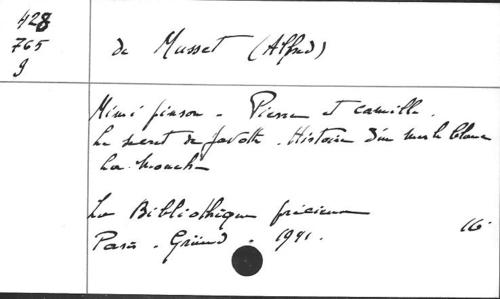 428
765
9
de Musset (Alfred)
Mimi pinson. Pierre et camille.
Le secret de javotte. Histoire d'un merle blanc
La mouche
La Bibliothèque précieuse
Paris. Gründ. 1941.
16°